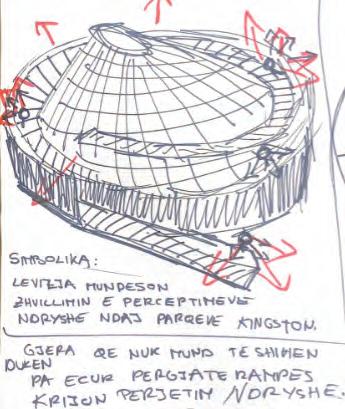 SIMBOLIKA:
LEVIZJA MUNDESON
ZHVILLIMIN E PERCEPTIMEVE
NDRYSHE NDAJ PARQEVE KINGSTON.
GJERA QE NUK MUND TE SHIHEN
DUKEN
PA ECUR PERGJATE RAMPES
KRIJON PERJETIM NDRYSHE.